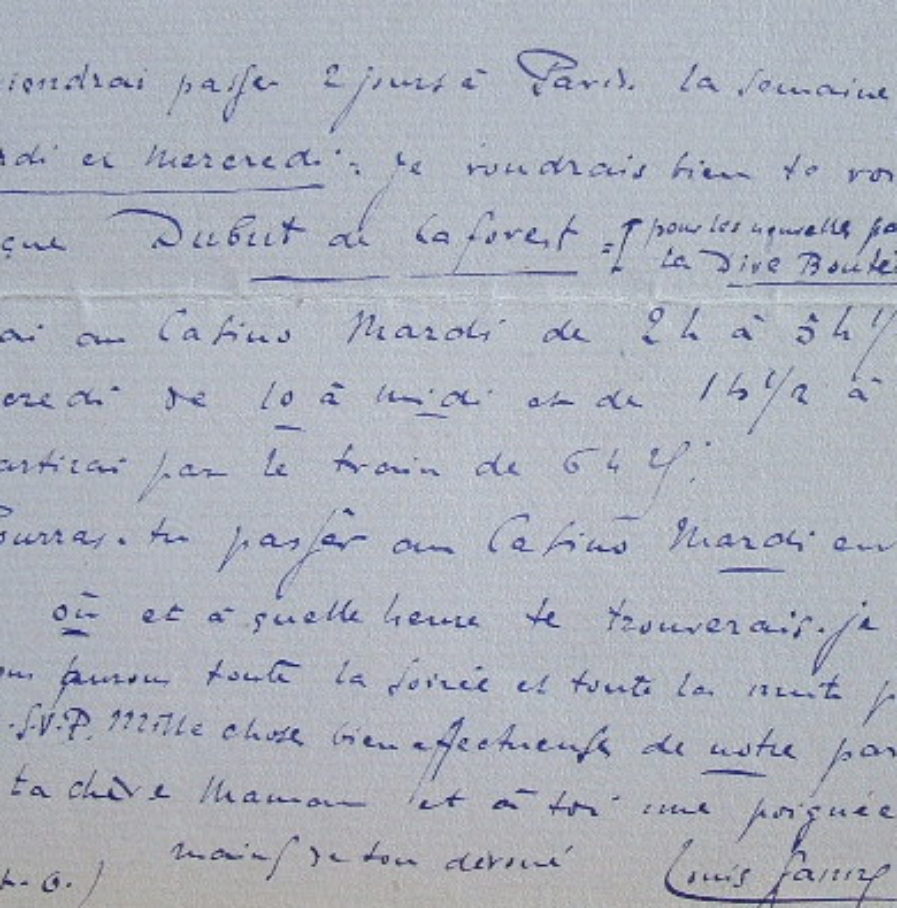 iendrai passer 2 jours à Paris. la semaine
rdi et Mercredi. je voudrais bien te voi
que Dubut de Laforest = [pour les nouvelles pa
la Dive Boutei
ai au Casino Mardi de 2h à 5h 1/
credi de 10 à midi et de 1h 1/2 à
artirai par le train de 6h
ourras-tu passer au Casino Mardi en
où et à quelle heure te trouverais-je
aurons toute la soirée et toute la nuit p
. S.V.P. Mille choses bien affectueuses de notre par
ta chère Maman et à toi une poignée
mains de ton dévoué Louis Ganne
. o.)